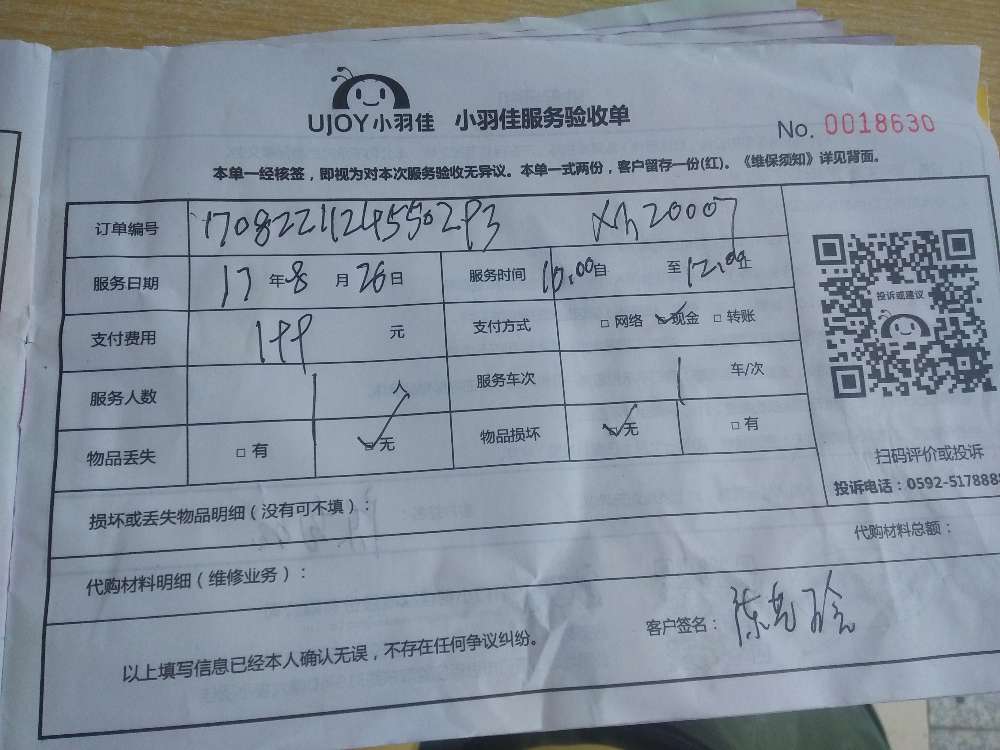 UJOY小羽佳 小羽佳服务验收单
No. 0018630
本单一经核签，即视为对本次服务验收无异议。本单一式两份，客户留存一份(红)。《维保须知》详见背面。
订单编号
服务日期 17年8月26日 服务时间 10:00自 至12:00止
支付费用 199 元 支付方式 □网络 ☑现金 □转账
服务人数 1 人 服务车次 1 车/次
物品丢失 □有 ☑无 物品损坏 ☑无 □有
投诉或建议
扫码评价或投诉
投诉电话：0592-5178888
损坏或丢失物品明细（没有可不填）：
代购材料总额：
代购材料明细（维修业务）：
以上填写信息已经本人确认无误，不存在任何争议纠纷。
客户签名：陈